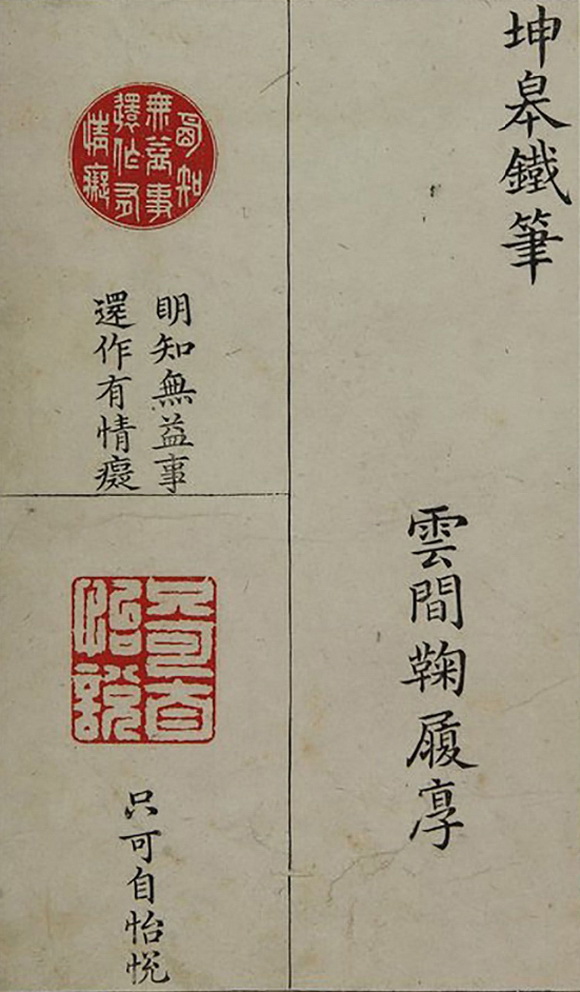 坤皋鐵筆
雲間鞠履厚
明知
無益事
還作有
情癡
明知無益事
還作有情癡
只可自
怡說
只可自怡悅